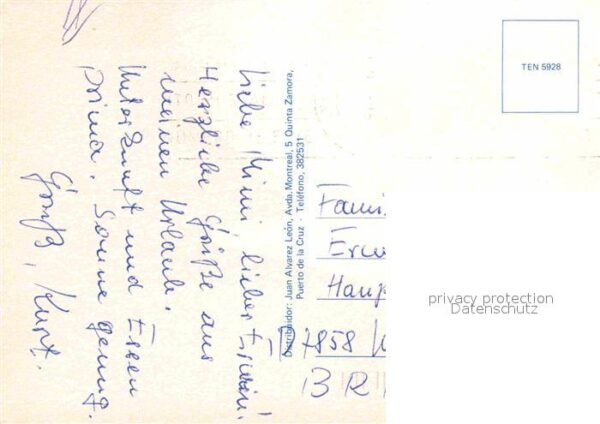 Liebe Mimi, lieber Erwin!
Herzliche Grüße aus
meinem Urlaub.
Unterkunft und Essen
prima. Sonne genug.
Gruß, Kurt.
Distribuidor: Juan Alvarez León, Avda. Montreal, 5 Quinta Zamora,
Puerto de la Cruz · Teléfono, 382531
TEN 5928
Fami
Erw
Haup
D 7858
BR
privacy protection
Datenschutz